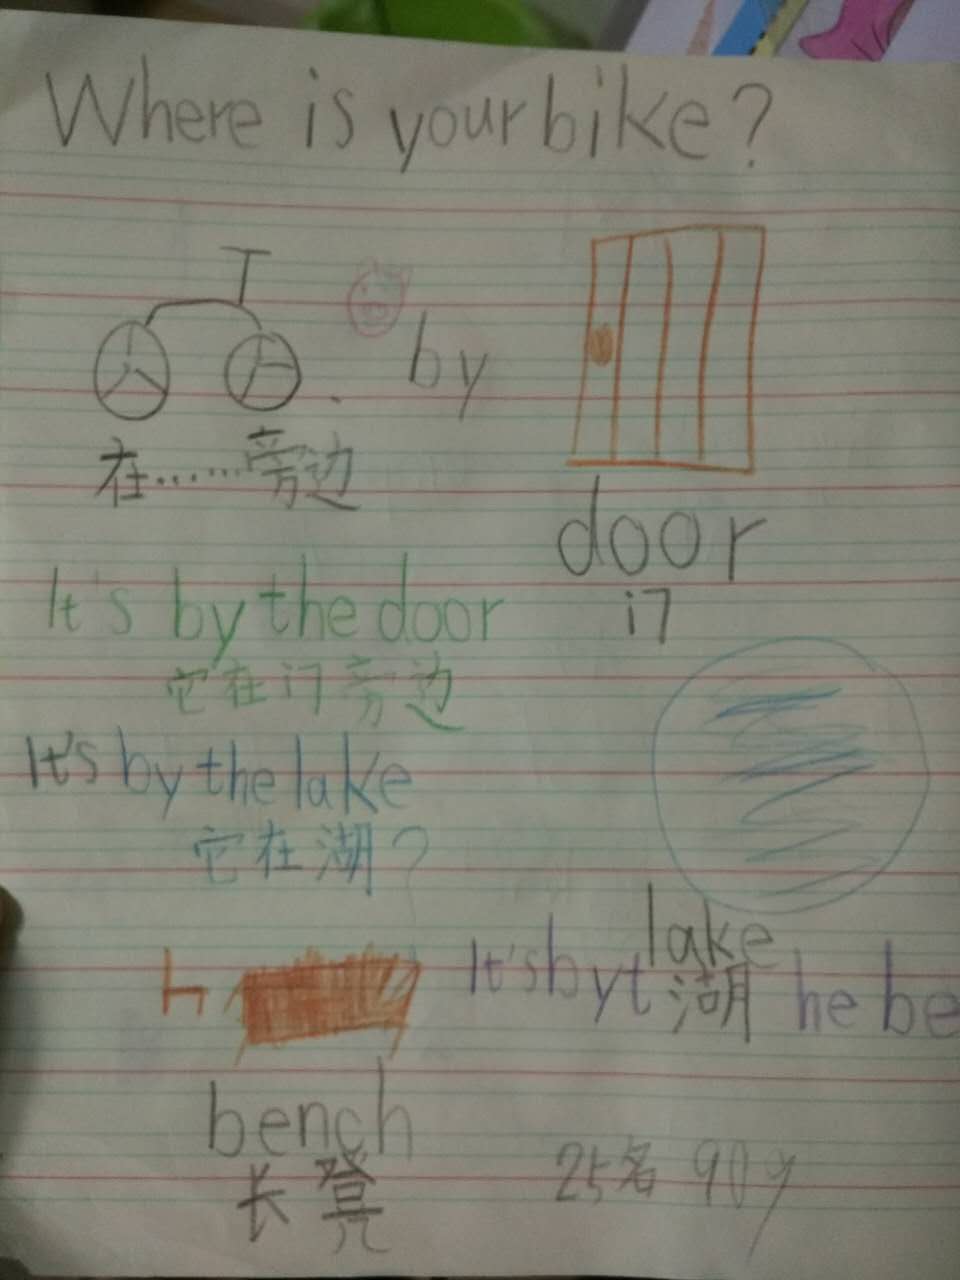 Where is your bike?
by
在……旁边
door
门
It's by the door
它在门旁边
It's by the lake
它在湖?
lake
湖
It's by the be
bench
长凳
25名 90y